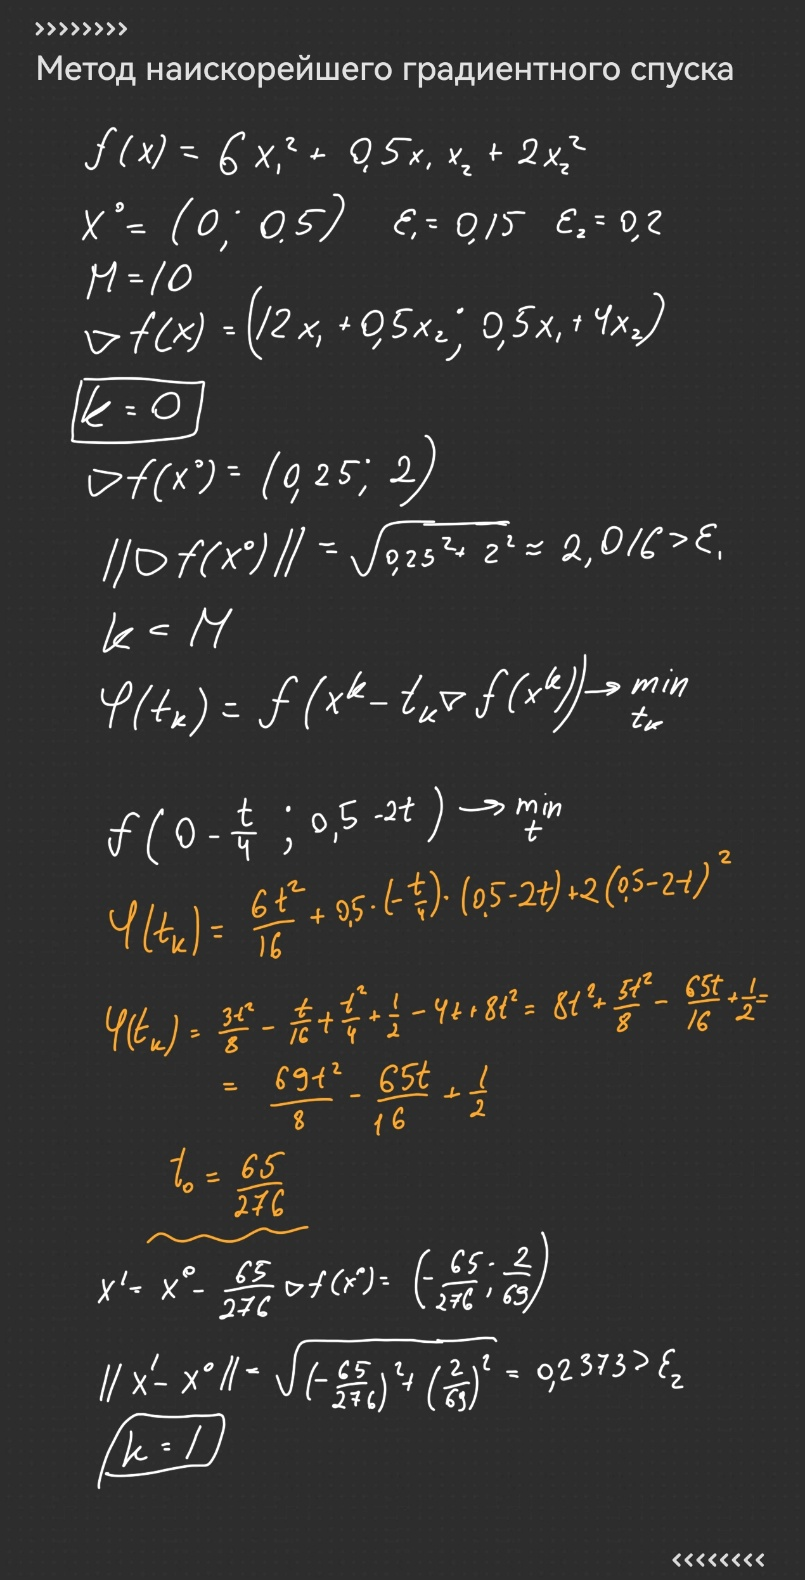 >>>>>>>>
Метод наискорейшего градиентного спуска
f(x) = 6x₁² + 0,5x₁x₂ + 2x₂²
x⁰ = (0; 0.5) ε₁ = 0,15 ε₂ = 0,2
M = 10
▽f(x) = (12x₁ + 0,5x₂; 0,5x₁ + 4x₂)
k = 0
▽f(x⁰) = (0,25; 2)
||▽f(x⁰)|| = √(0,25² + 2²) ≈ 2,016 > ε₁
k < M
φ(tₖ) = f(xᵏ - tₖ▽f(xᵏ)) → min tₖ
f(0 - t/4; 0,5 - 2t) → min t
φ(tₖ) = 6t²/16 + 0,5·(-t/4)·(0,5-2t) + 2(0,5-2t)²
φ(tₖ) = 3t²/8 - t/16 + t²/4 + 1/2 - 4t + 8t² = 8t² + 5t²/8 - 65t/16 + 1/2 =
= 69t²/8 - 65t/16 + 1/2
t₀ = 65/276
x¹ = x⁰ - 65/276 ▽f(x⁰) = (-65/276; 2/69)
||x¹ - x⁰|| = √((-65/276)² + (2/69)²) = 0,2373 > ε₂
k = 1
<<<<<<<<